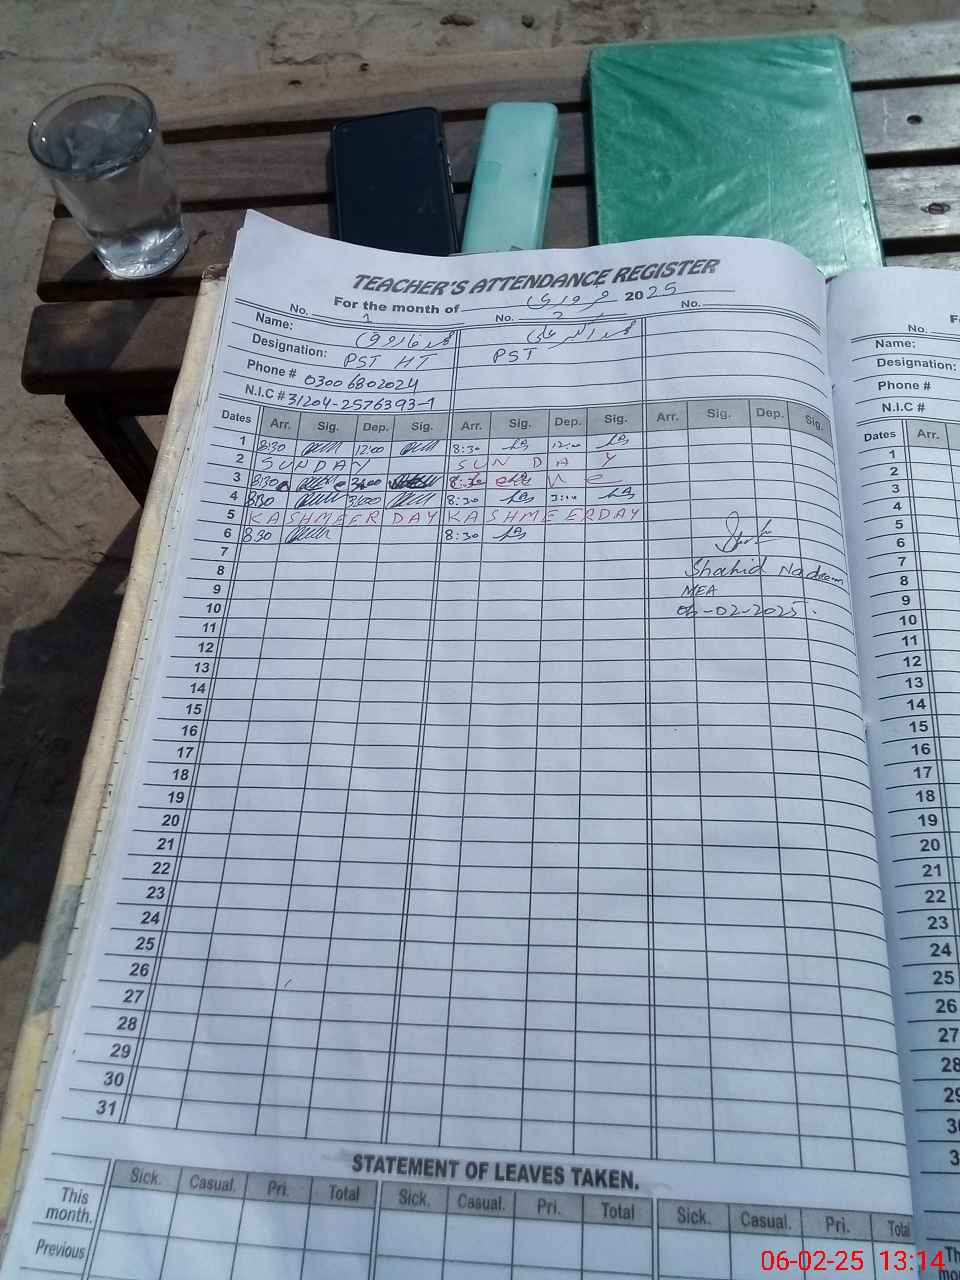 TEACHER'S ATTENDANCE REGISTER
For the month of فروری 2025
No. 1 No. 2 No.
Name: محمد فاروق محمد اکبر علی
Designation: PST HT PST
Phone # 03006802024
N.I.C # 31204-2576393-1
Dates Arr. Sig. Dep. Sig. Arr. Sig. Dep. Sig. Arr. Sig. Dep. Sig.
1 8:30 12:00 8:30 12:00
2 SUNDAY SUNDAY
3 8:30 3:00
4 8:30 3:00 8:30 3:00
5 KASHMEER DAY KASHMEERDAY
6 8:30 8:30
7
8 Shahid Nadeem
9 MEA
10 06-02-2025.
11
12
13
14
15
16
17
18
19
20
21
22
23
24
25
26
27
28
29
30
31
STATEMENT OF LEAVES TAKEN.
Sick. Casual. Pri. Total Sick. Casual. Pri. Total Sick. Casual. Pri. Total
This month.
Previous
No.
Name:
Designation:
Phone #
N.I.C #
Dates Arr.
1
2
3
4
5
6
7
8
9
10
11
12
13
14
15
16
17
18
19
20
21
22
23
24
25
26
27
28
06-02-25 13:14